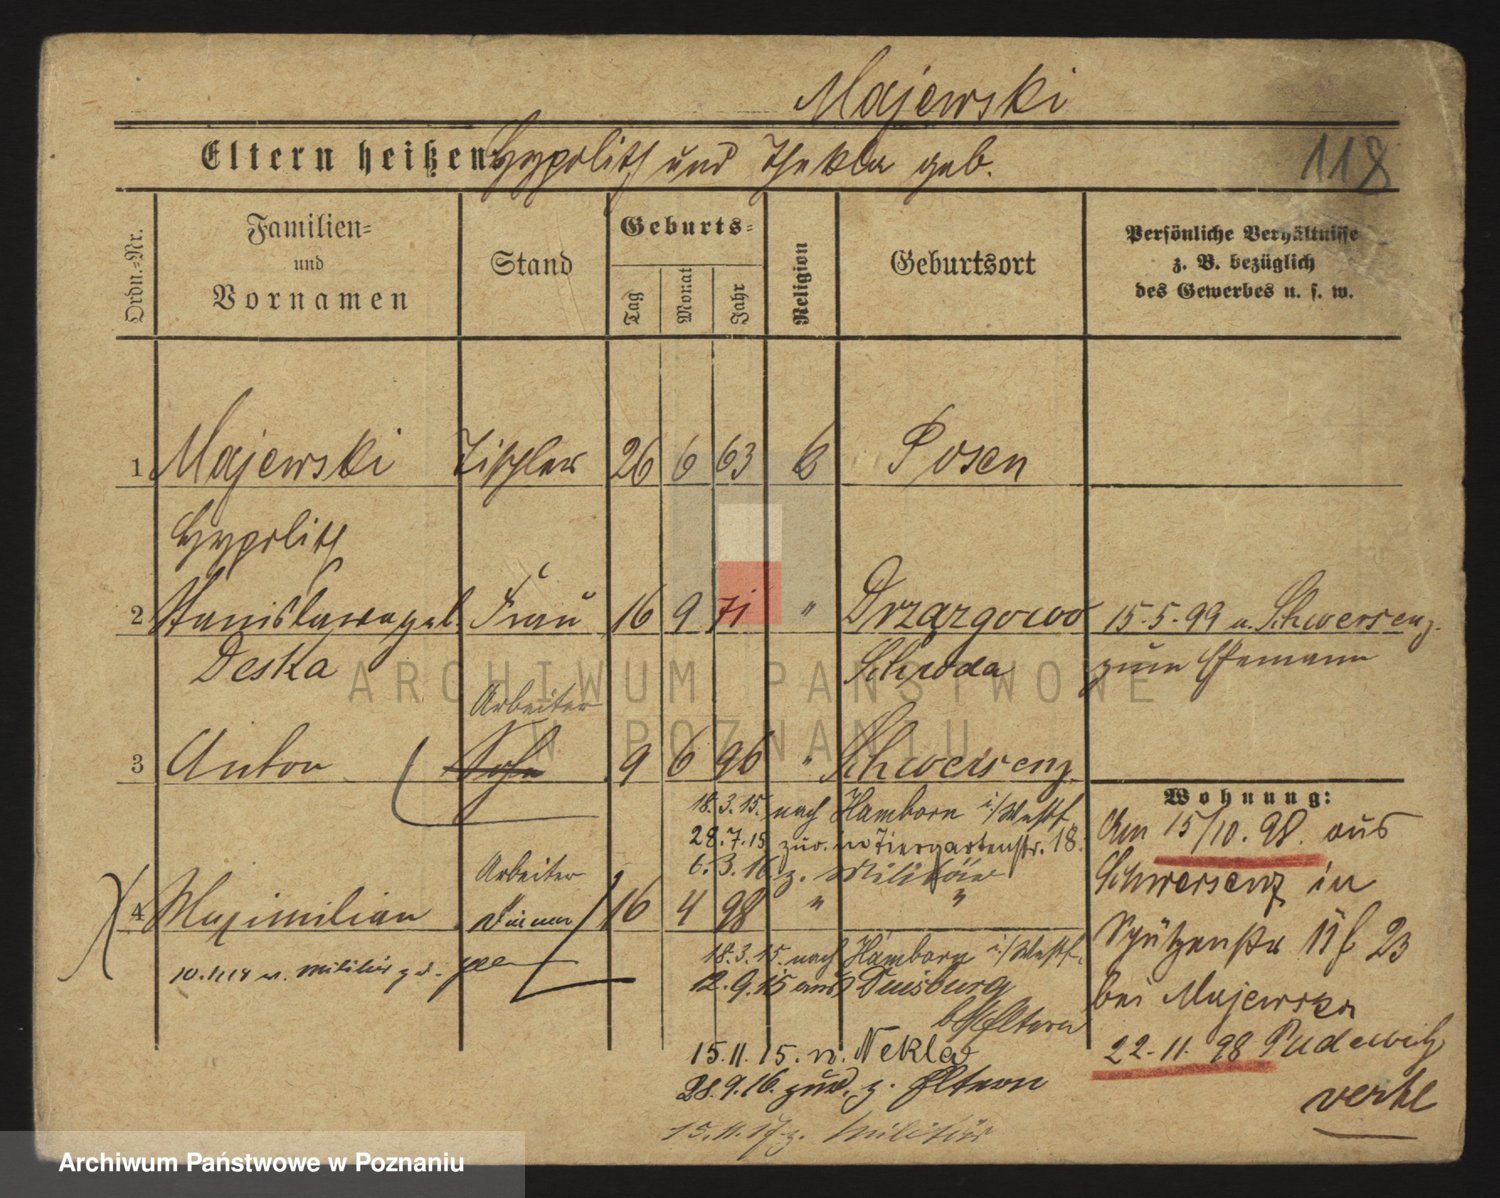 Majewski
Eltern heißen: Hypolith und Thekla geb.
118
Ordn.-Nr.
Familien-
und
Vornamen
Stand
Geburts-
Tag
Monat
Jahr
Religion
Geburtsort
Persönliche Verhältnisse
z. B. bezüglich
des Gewerbes u. s. w.
1 Majewski Tischler 26 6 63 Posen
Hypolith
2 Stanislawa geb. Frau 16 9 71 " Drzazgowo 15.5.99 n. Schwersenz
Deska Schroda zum Ehemann
Arbeiter
3 Anton Sohn 9 6 96 " Schwersenz
18.3.15. nach Hamborn i/Westf.
28.7.15 zur. in Tiergartenstr. 18.
6.3.16 z. Militär
Arbeiter
4 Maximilian 16 4 98 " "
10.1118 v. Militär
18.3.15. nach Hamborn i/Westf.
12.9.15 aus Duisburg
b/Eltern
15.11.15. n. Nekla
28.9.16. zur. z. Eltern
15.11.17 z. Militär
Wohnung:
Am 15/10.98. aus
Schwersenz in
Schützenstr 11 f 23
bei Majewska
22.11.98 Pudewitz
verhl
ARCHIWUM PAŃSTWOWE
W POZNANIU
Archiwum Państwowe w Poznaniu